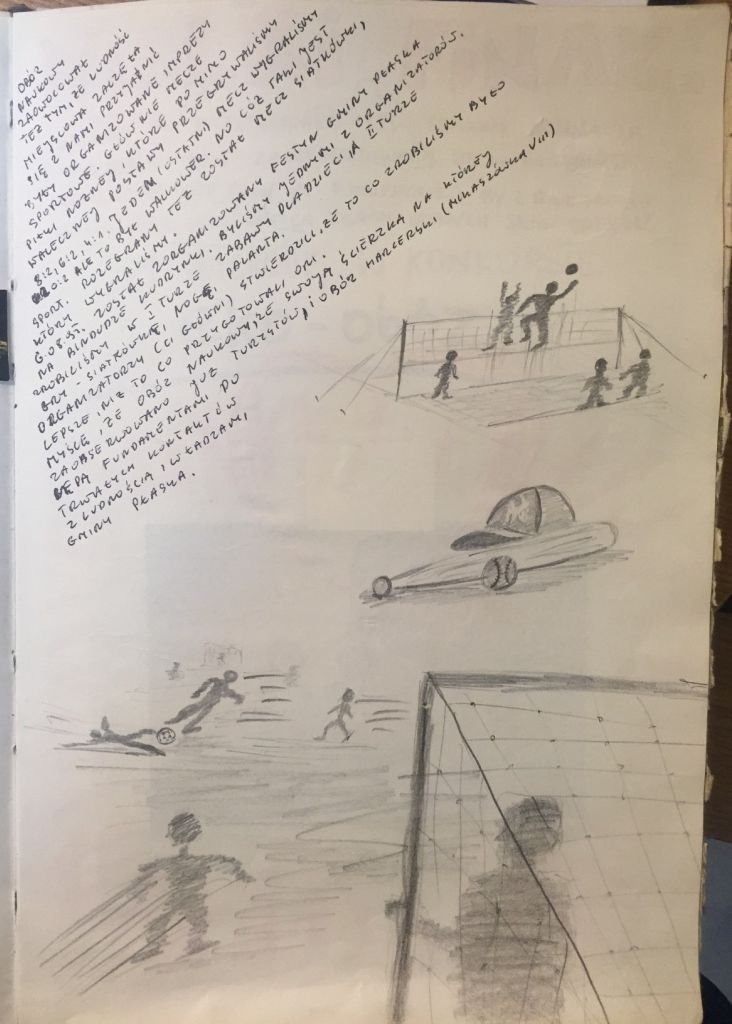 OBÓZ
NAUKOWY
ZAOWOCOWAŁ
TEŻ TYM, ŻE LUDNOŚĆ
MIEJSCOWA ZACZĘŁA
SIĘ Z NAMI PRZYJAŹNIĆ
BYŁY ORGANIZOWANE IMPREZY
SPORTOWE, GŁÓWNIE MECZE
PIŁKI NOŻNEJ, KTÓRE POMIMO
WALECZNEJ POSTAWY PRZEGRYWALIŚMY
8:2, 6:2, 4:1. JEDEN (OSTATNI) MECZ WYGRALIŚMY
0:2 ALE TO BYŁ WALKOWER. NO CÓŻ TAKI JEST
SPORT. ROZEGRANY TEŻ ZOSTAŁ MECZ SIATKÓWKI,
KTÓRY WYGRALIŚMY.
ZOSTAŁ ZORGANIZOWANY FESTYN GMINY PŁASKA
NA BINDUDZE KUDRYNKI. BYLIŚMY JEDNYMI Z ORGANIZATORÓW.
ZROBILIŚMY W I TURZE ZABAWY DLA DZIECI, A II TURZE
GRY - SIATKÓWKĘ, NOGĘ, PALANTA.
ORGANIZATORZY (CI GŁÓWNI) STWIERDZILI, ŻE TO CO ZROBILIŚMY BYŁO
LEPSZE, NIŻ TO CO PRZYGOTOWALI ONI.
MYŚLĘ, ŻE OBÓZ NAUKOWY, ZE SWOJĄ ŚCIERZKĄ NA KTÓREJ
ZAOBSERWOWANO JUŻ TURYSTÓW, I OBÓZ HARCERSKI (MIKASZÓWKA VIII)
BĘDĄ FUNDAMENTAMI DO
TRWAŁYCH KONTAKTÓW
Z LUDNOŚCIĄ I WŁADZAMI,
GMINY PŁASKA.